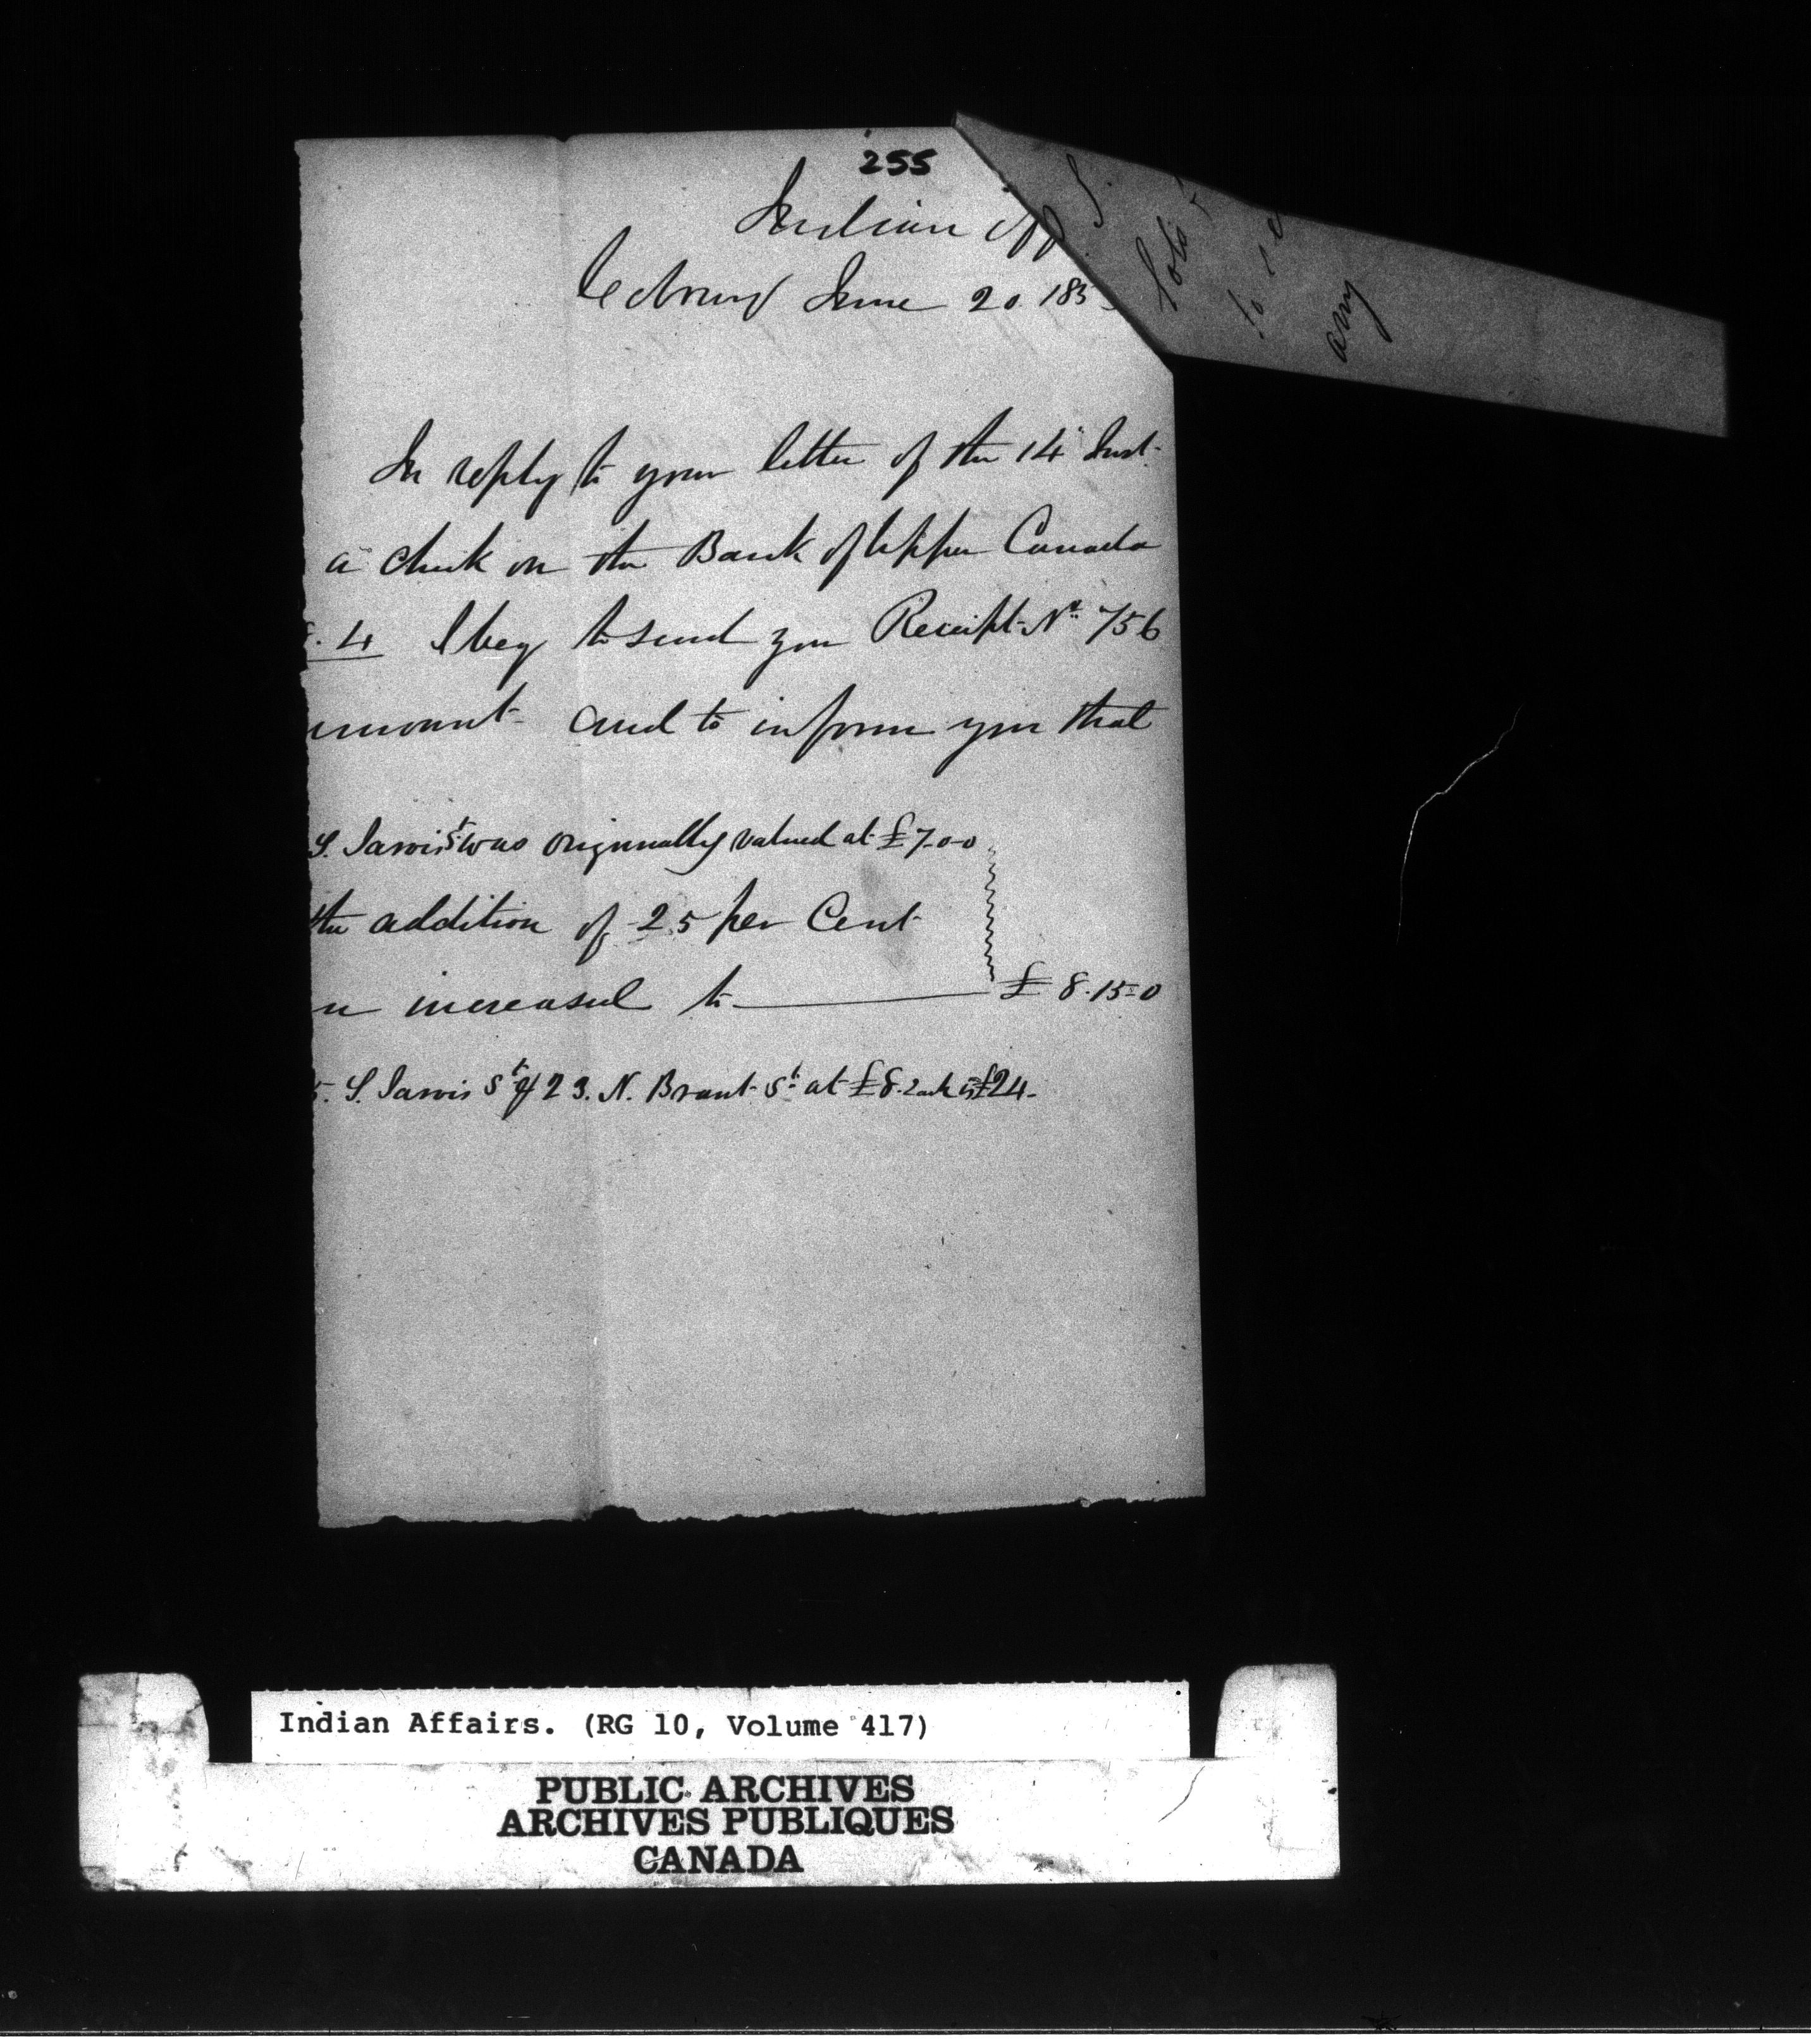 255
Indian Off
June 20. 185
In reply to your letter of the 14 Inst.
a check on the Bank of Upper Canada
. 4 I beg to send you Receipt No. 756
amount and to inform you that
S. Jarvis St. was originally valued at £7-0-0
the addition of 25 per Cent
increased to £ 8.15-0
5. S. Jarvis St. & 23. N. Brant St. at £8. is £24-
S.
lots
to
any
Indian Affairs. (RG 10, Volume 417)
PUBLIC ARCHIVES
ARCHIVES PUBLIQUES
CANADA